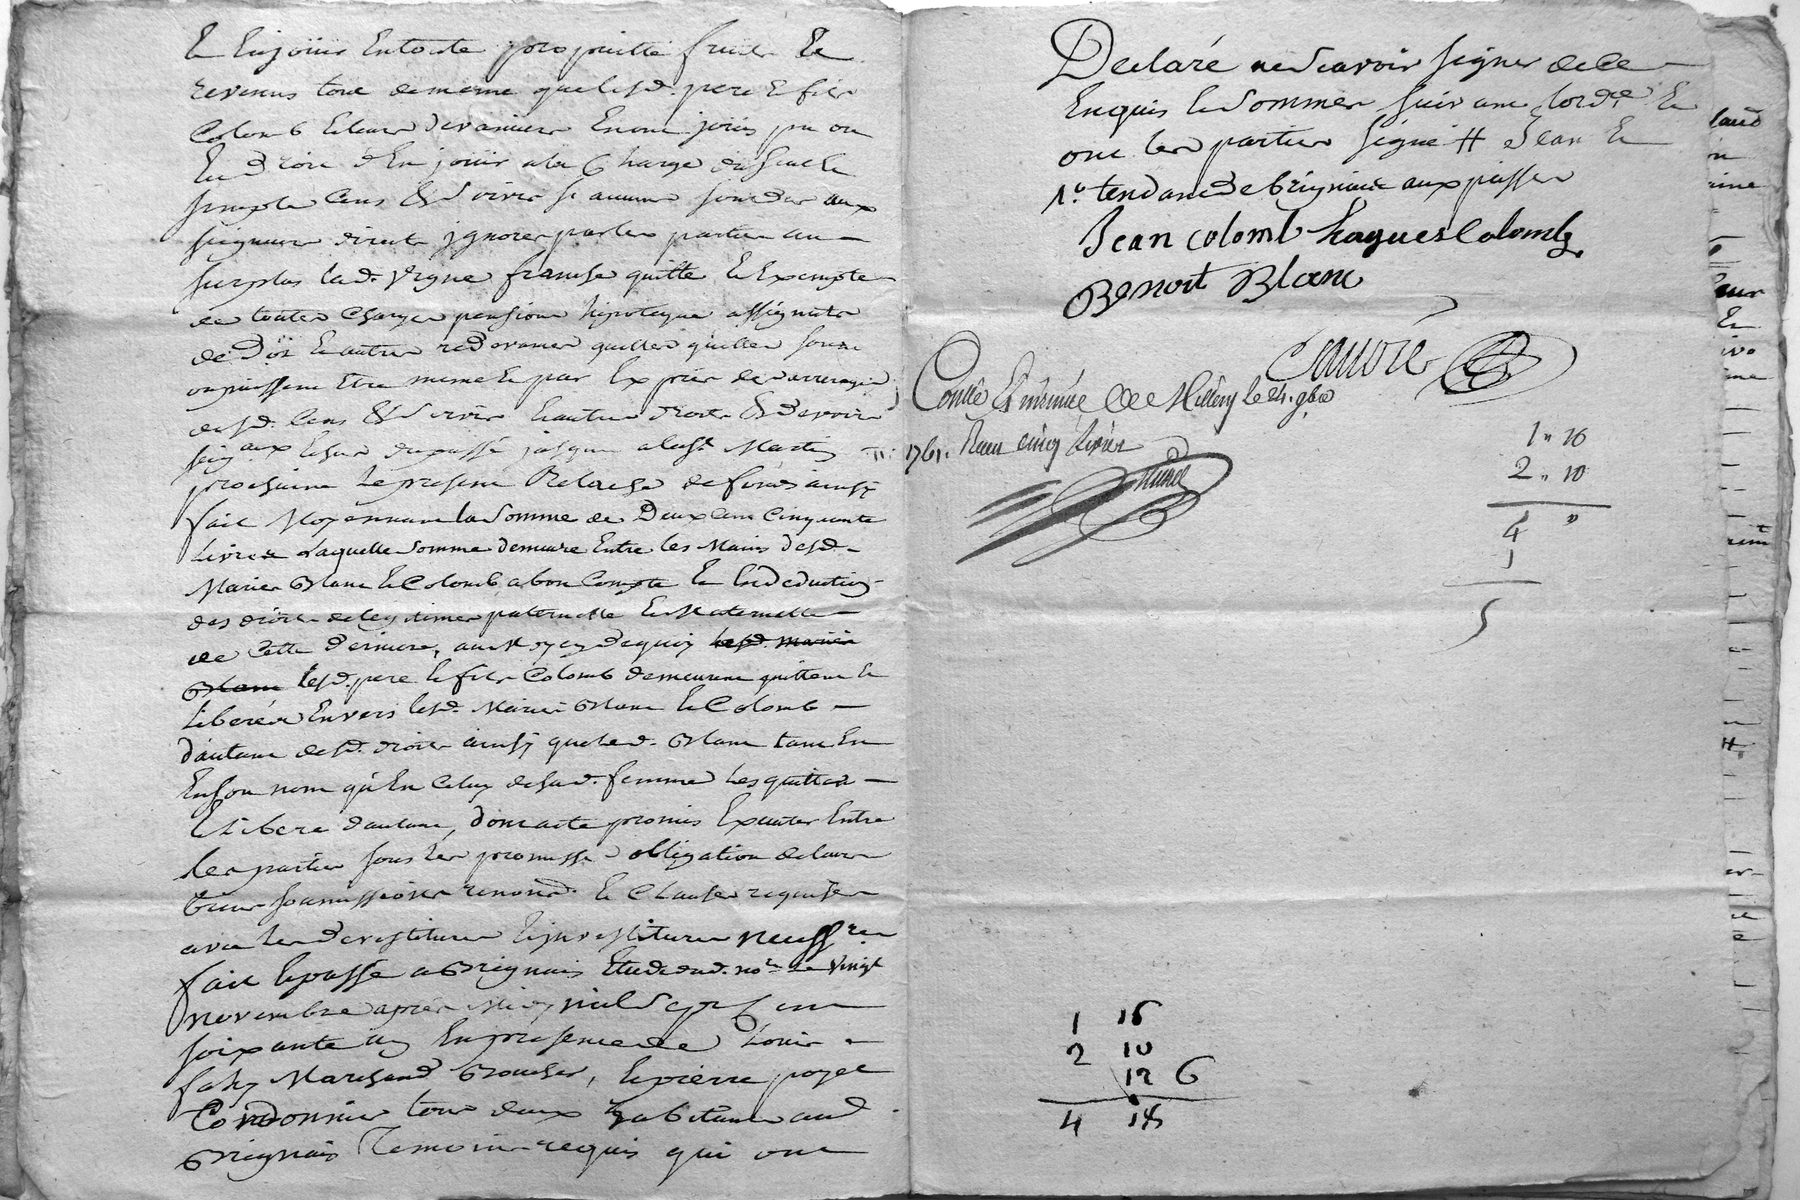 Et Enjouir Entoute propriette fruits Et
revenus tout de meme que lesd. pere et fils
Colomb Et leurs devanciers En ont jouis pu ou
Eu droit d'En jouir a la Charge du seul Et
simple Cens & servis si aucuns sont dus aux
seigneurs directs ignorés par les parties au
surplus lad. vigne franche quitte Et Exempte
de toutes charges pensions hipoteque assignats
de dot Et autres redevances quelles quelles soient
ou puissent Etre meme Et par Exprès des arrerages
desd. Cens & servis Et autres droits & devoirs
seigaux Echus du passé jusque a la st. Martin
prochaine Le present Relache de fonds ainsy
fait Moyennant la somme de Deux cent cinquante
Livres Laquelle somme demeure Entre les Mains desd.
Mariés Blanc Et Colomb a bon Compte Et En deduction
des droits de legitimes paternelle Et Maternelle
de Cette derniere, au moyen de quoy lesd. mariés
Blanc lesd. pere Et fils Colomb demeurent quittent Et
Liberés Envers lesd. Mariés Blanc Et Colomb
d'autant desd. droits ainsy que led. Blanc tant En
En son nom qu'En Celuy de sad. femme Les quitte
Et Libere d'autant, dont acte promis Executer Entre
les parties sous les promesse obligation de leurs
biens soumissions renond. Et Clauses requises
avec les devestitures Et investitures necessres
fait Et passé a Brignais Etude dud. nore Le vingt
novembre après Midy mil sept cent
soixante un En presence de Louis
fahy Marchand Boucher, Et pierre payet
Cordonnier tous deux habitants aud.
Brignais Temoins requis qui ont
Declaré ne scavoir signer de ce
Enquis Et Sommés suivant lord.ce Et
ont les parties signé # Jean Et
1.o tendance de Brignais aux passer
Jean colomb hugues Colomb
Benoit Blanc
Conllé Et insinué À Millery le 24. 9bre
1761. Reçu cinq Livres
1 " 16
2 " 10
4 "
1
5
1 16
2 10
12 6
4 18